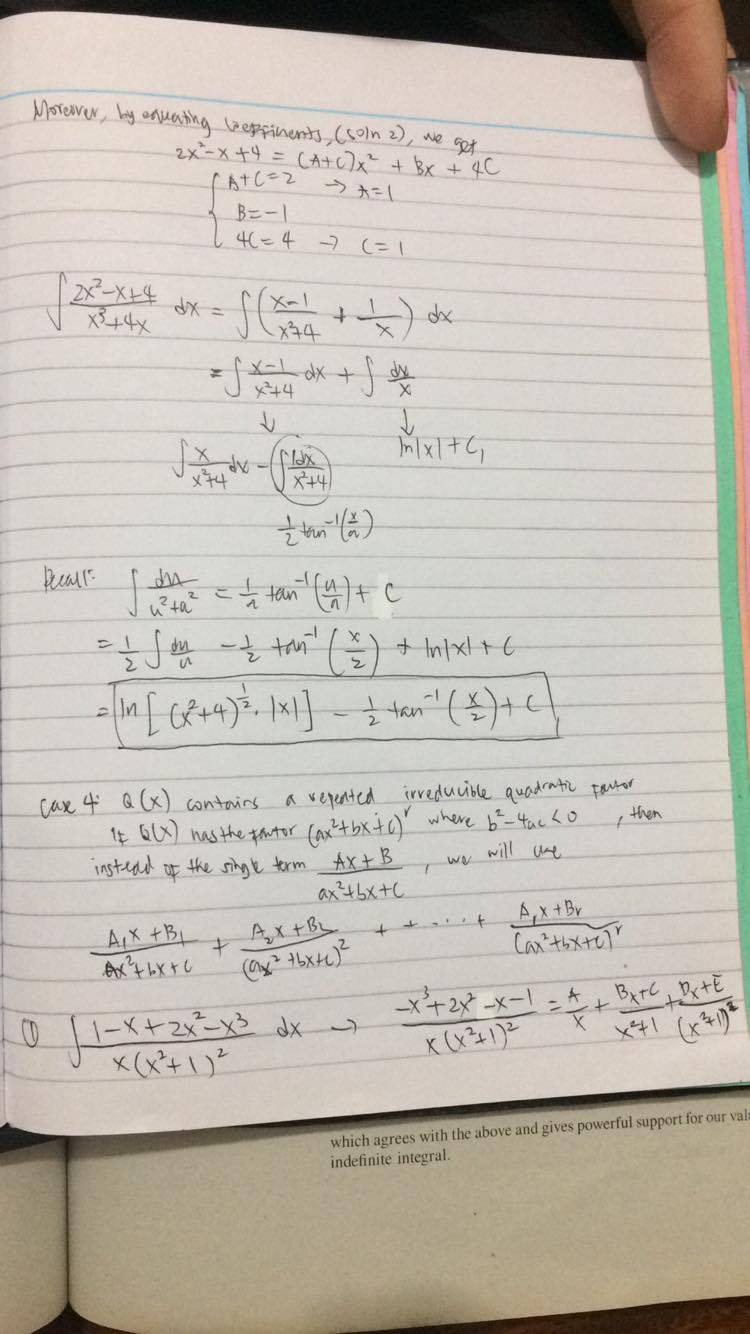 Moreover, by equating coefficients, (soln 2), we get
2x²-x+4 = (A+C)x² + Bx + 4C
{ A+C=2 → A=1
B=-1
4C=4 → C=1
∫ (2x²-x+4)/(x³+4x) dx = ∫ ( (x-1)/(x²+4) + 1/x ) dx
= ∫ (x-1)/(x²+4) dx + ∫ dx/x
↓ ↓
∫ x/(x²+4) dx - ∫ 1dx/(x²+4) ln|x| + C₁
1/2 tan⁻¹(x/a)
Recall: ∫ du/(u²+a²) = 1/a tan⁻¹(u/a) + C
= 1/2 ∫ du/u - 1/2 tan⁻¹(x/2) + ln|x| + C
= ln[(x²+4)^(1/2) · |x|] - 1/2 tan⁻¹(x/2) + C
Case 4: Q(x) contains a repeated irreducible quadratic factor
If Q(x) has the factor (ax²+bx+c)^r where b²-4ac<0, then
instead of the single term (Ax+B)/(ax²+bx+c), we will use
(A₁x+B₁)/(Ax²+bx+c) + (A₂x+B₂)/(ax²+bx+c)² + + ... + (A,x+Br)/(ax²+bx+c)^r
① ∫ (1-x+2x²-x³)/(x(x²+1)²) dx → (-x³+2x²-x-1)/(x(x²+1)²) = A/x + (Bx+C)/(x²+1) + (Dx+E)/(x²+1)²
which agrees with the above and gives powerful support for our val
indefinite integral.